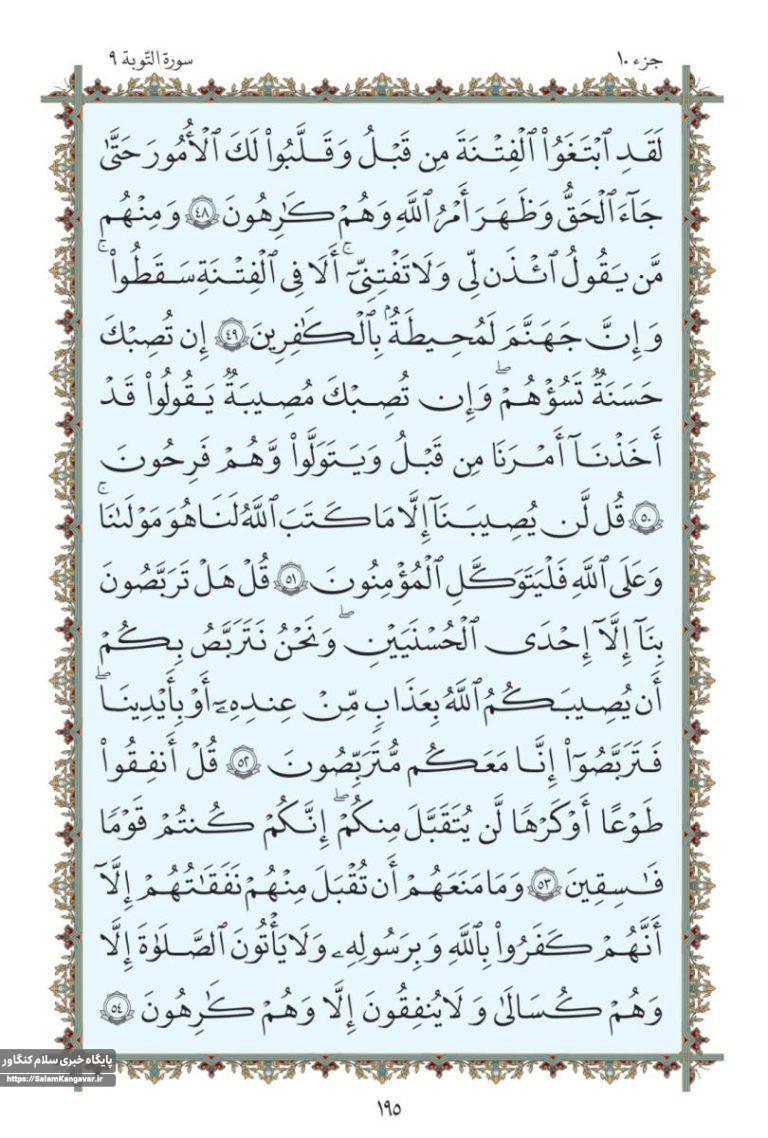 جزء ۱۰
سورة التّوبة ۹
لَقَدِ ٱبْتَغَوُا۟ ٱلْفِتْنَةَ مِن قَبْلُ وَقَلَّبُوا۟ لَكَ ٱلْأُمُورَ حَتَّىٰ
جَآءَ ٱلْحَقُّ وَظَهَرَ أَمْرُ ٱللَّهِ وَهُمْ كَـٰرِهُونَ ٤٨ وَمِنْهُم
مَّن يَقُولُ ٱئْذَن لِّى وَلَا تَفْتِنِّىٓ ۚ أَلَا فِى ٱلْفِتْنَةِ سَقَطُوا۟ ۗ
وَإِنَّ جَهَنَّمَ لَمُحِيطَةٌۢ بِٱلْكَـٰفِرِينَ ٤٩ إِن تُصِبْكَ
حَسَنَةٌ تَسُؤْهُمْ ۖ وَإِن تُصِبْكَ مُصِيبَةٌ يَقُولُوا۟ قَدْ
أَخَذْنَآ أَمْرَنَا مِن قَبْلُ وَيَتَوَلَّوا۟ وَّهُمْ فَرِحُونَ
٥٠ قُل لَّن يُصِيبَنَآ إِلَّا مَا كَتَبَ ٱللَّهُ لَنَا هُوَ مَوْلَىٰنَا ۚ
وَعَلَى ٱللَّهِ فَلْيَتَوَكَّلِ ٱلْمُؤْمِنُونَ ٥١ قُلْ هَلْ تَرَبَّصُونَ
بِنَآ إِلَّآ إِحْدَى ٱلْحُسْنَيَيْنِ ۖ وَنَحْنُ نَتَرَبَّصُ بِكُمْ
أَن يُصِيبَكُمُ ٱللَّهُ بِعَذَابٍ مِّنْ عِندِهِۦٓ أَوْ بِأَيْدِينَا ۖ
فَتَرَبَّصُوٓا۟ إِنَّا مَعَكُم مُّتَرَبِّصُونَ ٥٢ قُلْ أَنفِقُوا۟
طَوْعًا أَوْ كَرْهًا لَّن يُتَقَبَّلَ مِنكُمْ ۖ إِنَّكُمْ كُنتُمْ قَوْمًا
فَـٰسِقِينَ ٥٣ وَمَا مَنَعَهُمْ أَن تُقْبَلَ مِنْهُمْ نَفَقَـٰتُهُمْ إِلَّآ
أَنَّهُمْ كَفَرُوا۟ بِٱللَّهِ وَبِرَسُولِهِۦ وَلَا يَأْتُونَ ٱلصَّلَوٰةَ إِلَّا
وَهُمْ كُسَالَىٰ وَلَا يُنفِقُونَ إِلَّا وَهُمْ كَـٰرِهُونَ ٥٤
پایگاه خبری سلام کنگاور
https://SalamKangavar.ir
۱۹۵